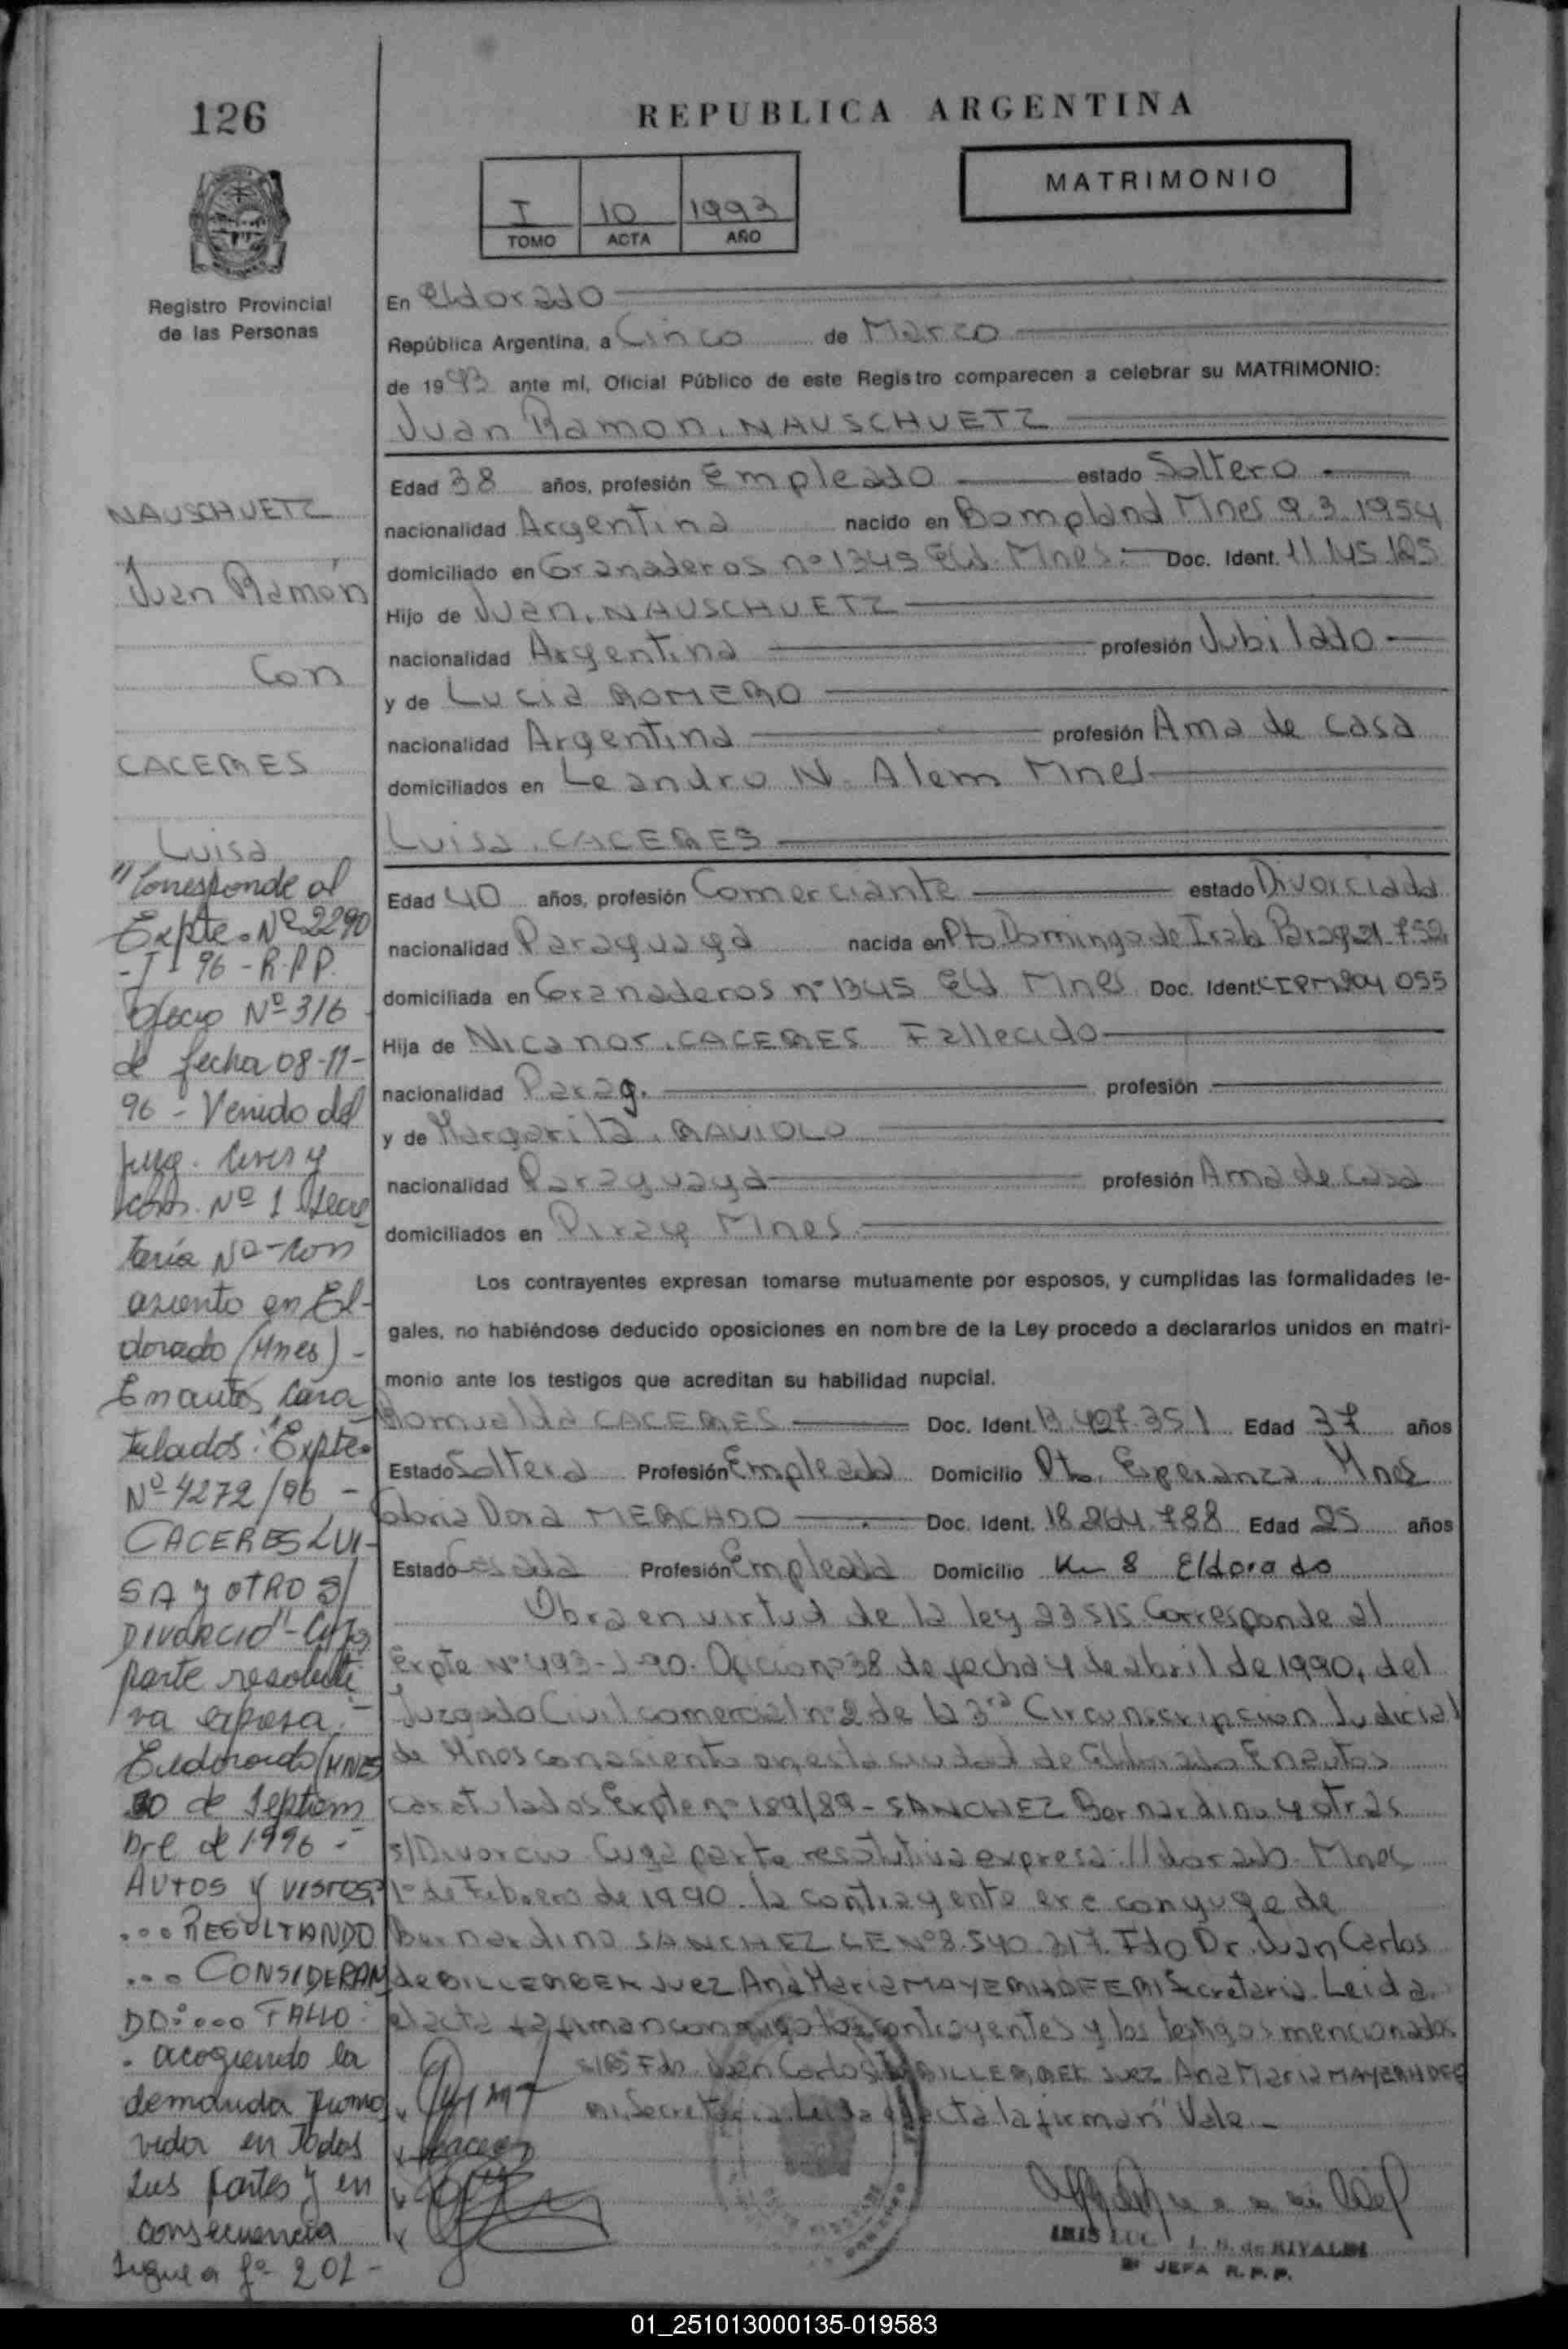 126
REPUBLICA ARGENTINA
MATRIMONIO
I 10 1993
TOMO ACTA AÑO
Registro Provincial
de las Personas
En Eldorado
República Argentina, a Cinco de Marzo
de 1993 ante mí, Oficial Público de este Registro comparecen a celebrar su MATRIMONIO:
Juan Ramon. NAUSCHUETZ
Edad 38 años, profesión Empleado estado Soltero
nacionalidad Argentina nacido en Bompland Mnes 9.3.1954
domiciliado en Granaderos nº 1345 Eld. Mnes. Doc. Ident. 11.145.125
Hijo de Juan. NAUSCHUETZ
nacionalidad Argentina profesión Jubilado
y de Lucia ROMERO
nacionalidad Argentina profesión Ama de casa
domiciliados en Leandro N. Alem Mnes
Luisa. CACERES
Edad 40 años, profesión Comerciante estado Divorciada
nacionalidad Paraguaya nacida en Pto Domingo de Irala
domiciliada en Granaderos nº 1345 Eld Mnes. Doc. Ident. 055
Hija de Nicanor. CACERES Fallecido
nacionalidad Parag. profesión
y de Margarita. RAVIOLO
nacionalidad Paraguaya profesión Ama de casa
domiciliados en Piray Mnes.
Los contrayentes expresan tomarse mutuamente por esposos, y cumplidas las formalidades le-
gales, no habiéndose deducido oposiciones en nombre de la Ley procedo a declararlos unidos en matri-
monio ante los testigos que acreditan su habilidad nupcial.
Romualda CACERES Doc. Ident. 13.427.351 Edad 37 años
Estado Soltera Profesión Empleada Domicilio Pto. Esperanza. Mnes
Gloria Dora MERCADO Doc. Ident. 18.264.788 Edad 25 años
Estado Casada Profesión Empleada Domicilio Km 8 Eldorado
Obra en virtud de la ley 23515 Corresponde al
Expte Nº 493-J-90. Oficio nº 38 de fecha 4 de abril de 1990, del
Juzgado Civil comercial nº 2 de la 3ra Circunscripcion Judicial
de Mnes con asiento en esta ciudad de Eldorado En autos
caratulados Expte nº 189/89 - SANCHEZ Bernardino y otras
s/Divorcio Cuya parte resolutiva expresa: //dorado. Mnes
1º de Febrero de 1990. la contrayente era conyuge de
Bernardino SANCHEZ LE Nº 8.540.317. Fdo Dr. Juan Carlos
de Juez Ana Maria Secretaria. Leida
el acta la firman conmigo los contrayentes y los testigos mencionados
Fdo. Juan Carlos Juez Ana Maria
Secretaria. Leida el acta la firman" Vale.-
IRIS de RIVALDI
JEFA R.P.P.
NAUSCHUETZ
Juan Ramón
Con
CACERES
Luisa
"Corresponde al
Expte. Nº 2290
-J- 96 - R.P.P.
Oficio Nº 316
de fecha 08-11-
96 - Venido del
Juzg. Civil y
Com. Nº 1 Secre
taria Nº - con
asiento en El-
dorado (Mnes) -
En autos cara
tulados: "Expte.
Nº 4272/96 -
CACERES LUI-
SA y OTRO S/
DIVORCIO" - Cuya
parte resoluti
va expresa: -
Eldorado (MNES)
30 de Septiem
bre de 1996 -
AUTOS Y VISTOS:
... RESULTANDO
... CONSIDERAN
DO: ... FALLO:
. acogiendo la
demanda promo
vida en todos
sus partes y en
consecuencia
Sigue a fº 201 -
01_251013000135-019583